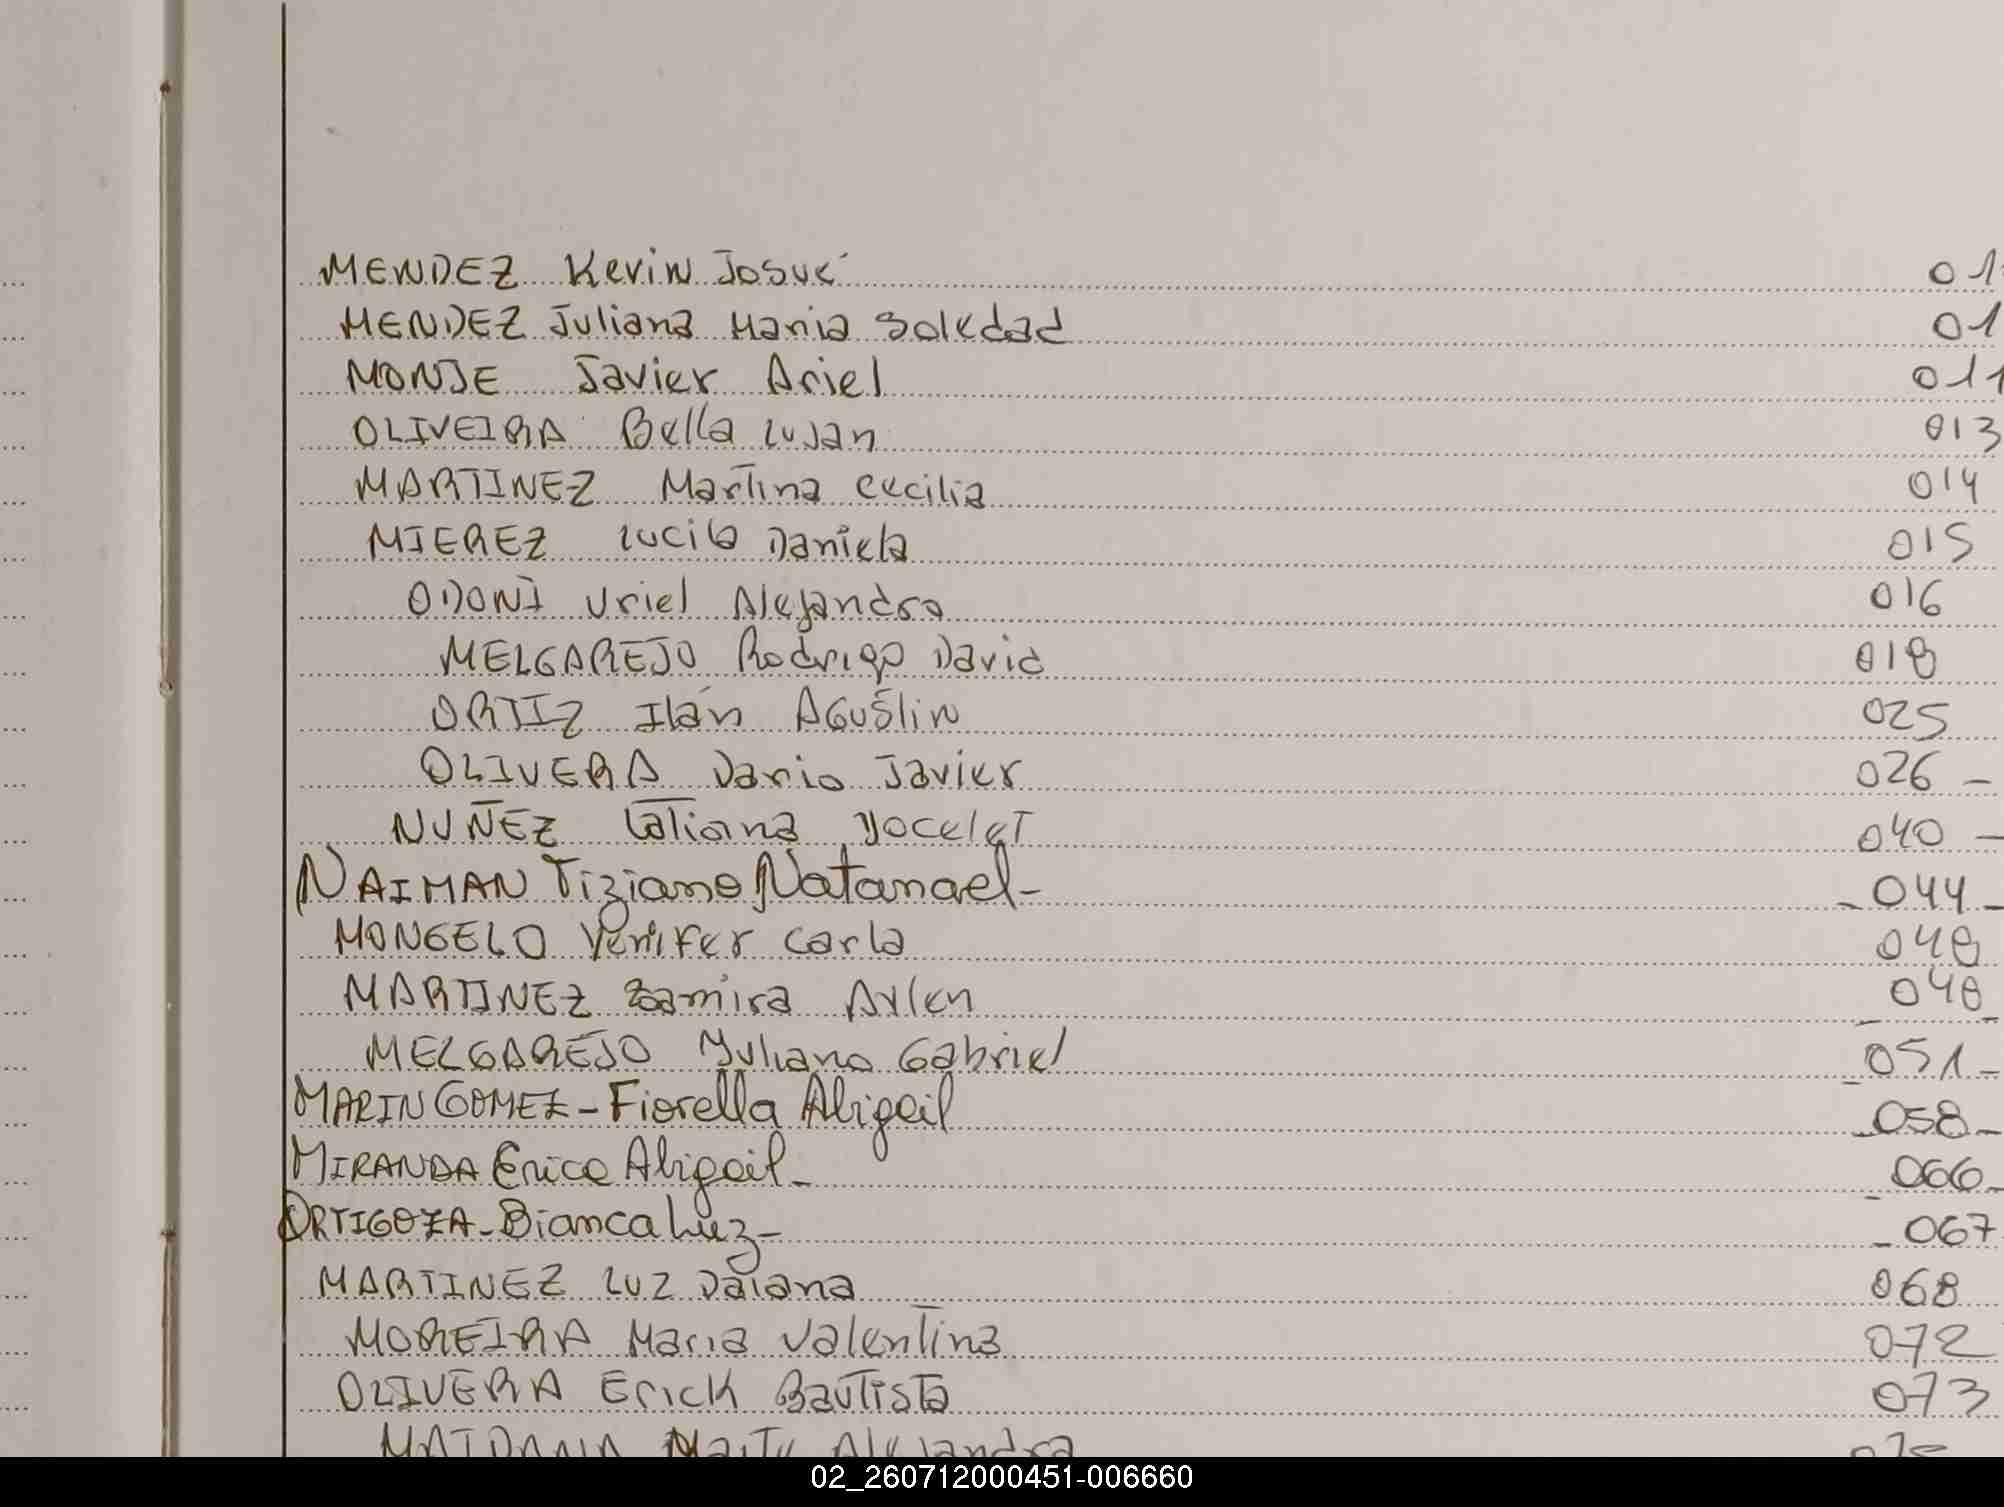 MENDEZ Kevin Josué 01
MENDEZ Juliana Maria Soledad 01
MONJE Javier Ariel 011
OLIVEIRA Bella Lujan 013
MARTINEZ Martina Cecilia 014
MIEREZ Lucila Daniela 015
ODONI Uriel Alejandro 016
MELGAREJO Rodrigo David 018
ORTIZ Ilán Agustin 025
OLIVERA Dario Javier 026 -
NUÑEZ Tatiana Yocelet 040 -
NAIMAN Tiziano Natanael- -044-
MONGELO Yenifer Carla 048
MARTINEZ Zamira Aylen -048-
MELGAREJO Yuliano Gabriel -051-
MARIN GOMEZ - Fiorella Abigail -058-
MIRANDA Erica Abigail- -066-
ORTIGOZA - Bianca Luz- -067
MARTINEZ Luz Daiana 068
MOREIRA Maria Valentina 072
OLIVERA Erick Bautista 073
Alejandra
02_260712000451-006660